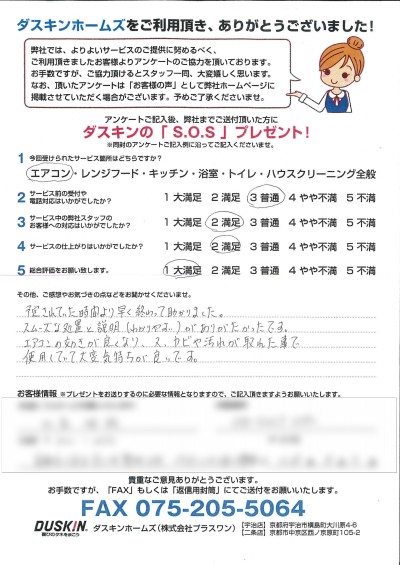 ダスキンホームズをご利用頂き、ありがとうございました!
弊社では、よりよいサービスのご提供に努めるべく、
ご利用頂きましたお客様よりアンケートのご協力を頂いております。
お手数ですが、ご協力頂けるとスタッフ一同、大変嬉しく思います。
なお、頂いたアンケートは「お客様の声」として弊社ホームページに
掲載させていただく場合がございます。予めご了承くださいませ。
アンケートご記入後、弊社までご送付頂いた方に
ダスキンの「S.O.S」プレゼント!
※同封のアンケートご記入例に沿ってご記入くださいませ。
1 今回受けられたサービス箇所はどちらですか?
エアコン・レンジフード・キッチン・浴室・トイレ・ハウスクリーニング全般
2 サービス前の受付や
電話対応はいかがでしたか? 1 大満足 2 満足 3 普通 4 やや不満 5 不満
3 サービス中の弊社スタッフの
お客様への対応はいかがでしたか? 1 大満足 2 満足 3 普通 4 やや不満 5 不満
4 サービスの仕上がりはいかがでしたか? 1 大満足 2 満足 3 普通 4 やや不満 5 不満
5 総合評価をお願い致します。 1 大満足 2 満足 3 普通 4 やや不満 5 不満
その他、ご感想やお気づきの点などをお聞かせくださいませ。
予定されていた時間より早く終わって助かりました。
スムーズな処置と説明(わかりやすい)がありがたかったです。
エアコンの効きが良くなり、又、カビや汚れが取れた事で
使用していて大変気持ちが良いです。
お客様情報 ※プレゼントをお送りするのに必要な情報となりますので、ご記入頂きますようお願いいたします。
貴重なご意見ありがとうございます。
お手数ですが、「FAX」もしくは「返信用封筒」にてご送付をお願いいたします。
FAX 075-205-5064
DUSKIN
ダスキンホームズ(株式会社プラスワン)
【宇治店】京都府宇治市槇島町大川原4-6
【二条店】京都市中京区西ノ京原町105-2